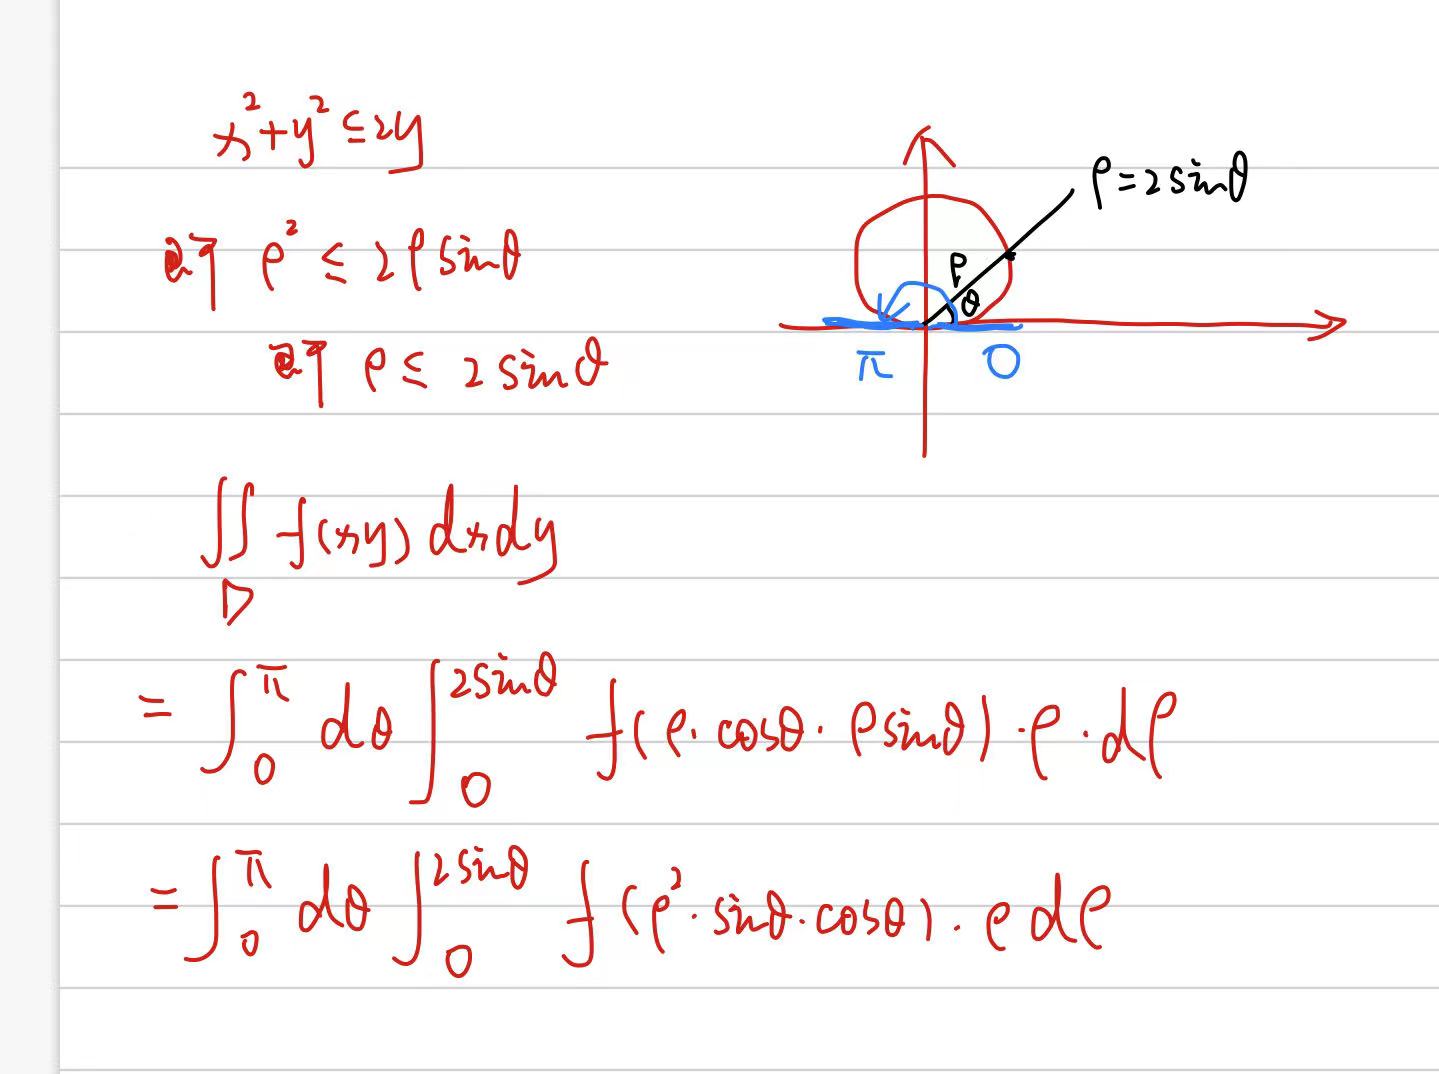 x²+y²≤2y
ρ=2sinθ
即 ρ² ≤ 2ρsinθ
ρ
θ
π 0
即 ρ ≤ 2sinθ
∬_D f(xy) dxdy
= ∫_0^π dθ ∫_0^{2sinθ} f(ρ·cosθ·ρsinθ)·ρ·dρ
= ∫_0^π dθ ∫_0^{2sinθ} f(ρ²·sinθ·cosθ)·ρdρ